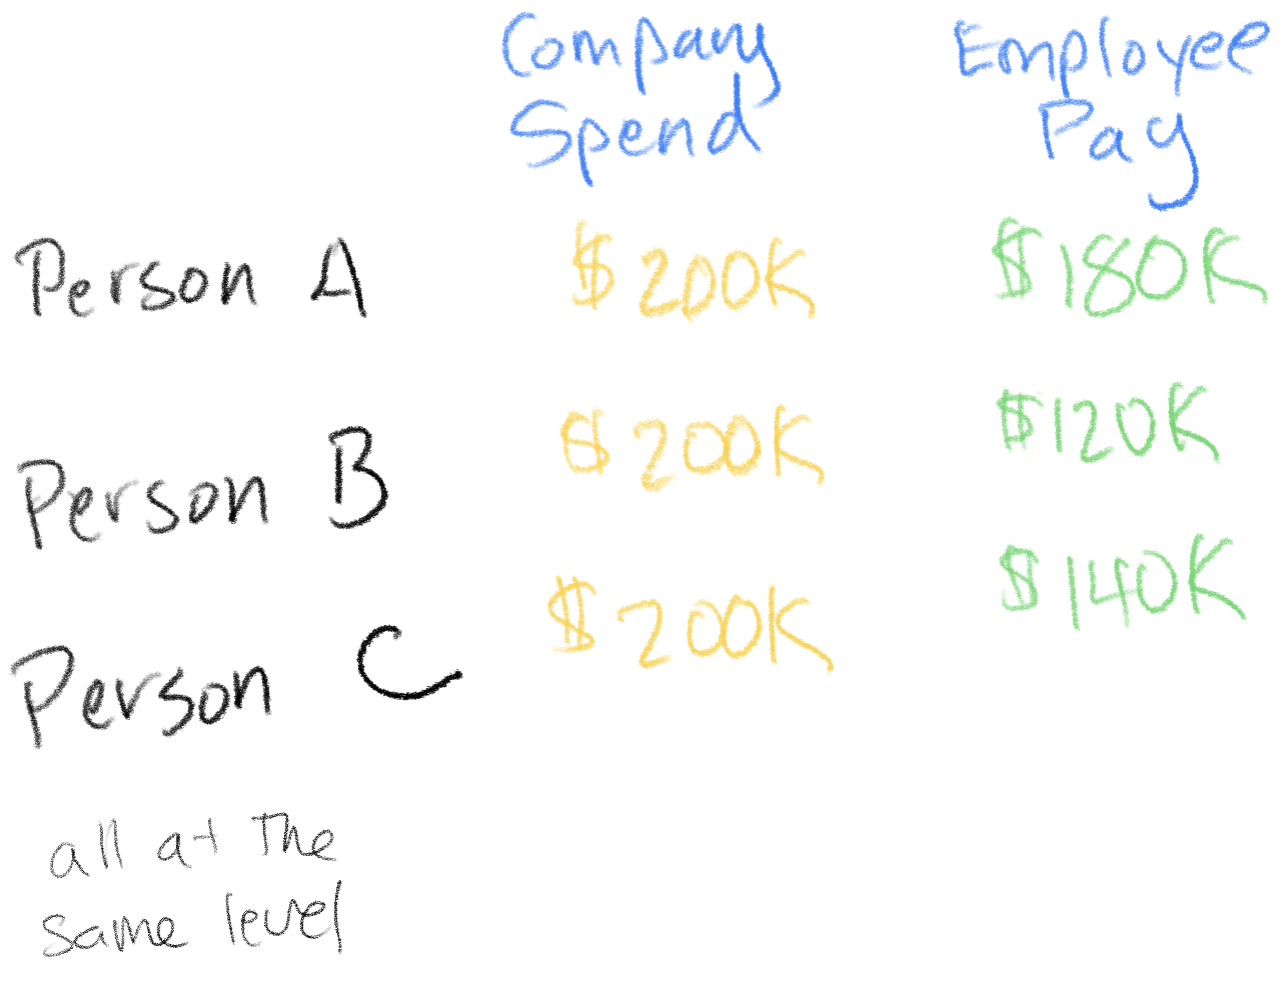 Company Spend
Employee Pay
Person A $200K $180K
Person B $200K $120K
Person C $200K $140K
all at the
same level